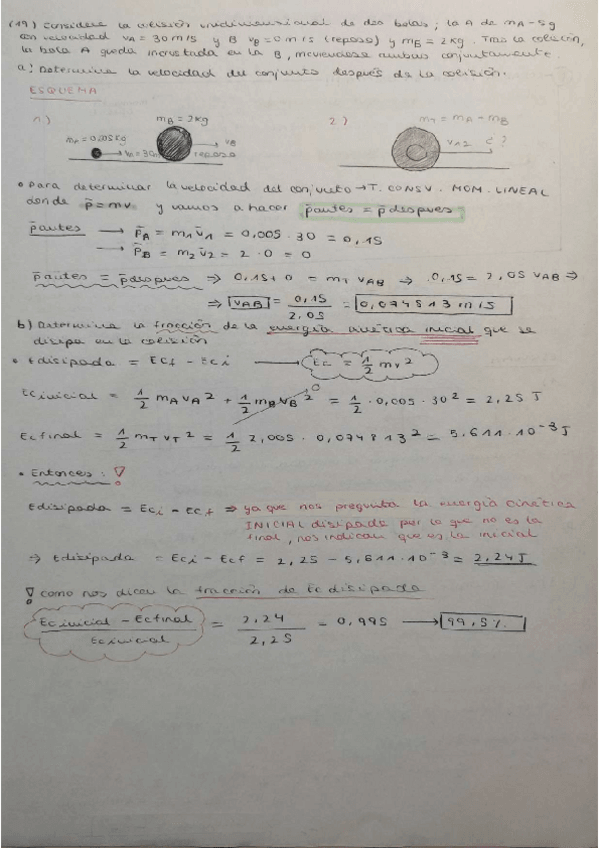 (19) Considere la colisión unidimensional de dos bolas; la A de mA = 5g
con velocidad vA = 30 m/s y B vB = 0 m/s (reposo) y mB = 2 kg. Tras la colisión,
la bola A queda incrustada en la B, moviendose ambas conjuntamente.
a) Determine la velocidad del conjunto después de la colisión.
ESQUEMA
1) mB = 2kg 2) mT = mA - mB
mA = 0,005 kg vB vA2 ?
reposo
• para determinar la velocidad del conjunto → T. CONSV. MOM. LINEAL
donde p̄ = mv̄ y vamos a hacer p̄antes = p̄después
p̄antes → p̄A = m1 v̄1 = 0,005 · 30 = 0,15
→ p̄B = m2 v̄2 = 2 · 0 = 0
p̄antes = p̄despues ⇒ 0,15 + 0 = mT vAB ⇒ 0,15 = 2,05 vAB ⇒
⇒ vAB = 0,15 / 2,05 = 0,074813 m/s
b) Determine la fracción de la energía cinética inicial que se
disipa en la colisión
• Edisipada = Ecf - Eci → Ec = 1/2 mv²
Ecinicial = 1/2 mA vA² + 1/2 mB vB² 0 = 1/2 · 0,005 · 30² = 2,25 J
Ecfinal = 1/2 mT vT² = 1/2 2,005 · 0,074813² = 5,611 · 10⁻³ J
• Entonces: !
Edisipada = Eci - Ecf ⇒ ya que nos pregunta la energía cinética
INICIAL disipada por lo que no es la
final, nos indican que es la inicial
⇒ Edisipada = Eci - Ecf = 2,25 - 5,611 · 10⁻³ = 2,24 J
! como nos dicen la fracción de Ec disipada
Ecinicial - Ecfinal / Ecinicial = 2,24 / 2,25 = 0,995 → 99,5%